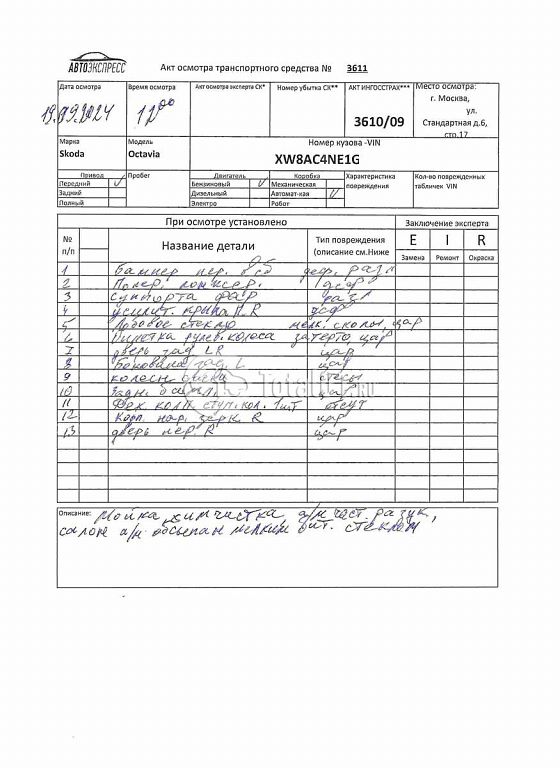 АВТОЭКСПРЕСС
Акт осмотра транспортного средства № 3611
Дата осмотра Время осмотра Акт осмотра эксперта СК* Номер убытка СК** АКТ ИНГОССТРАХ*** Место осмотра:
г. Москва,
ул.
19.09.2024 12 00 3610/09 Стандартная д.6,
стр.17
Марка Модель Номер кузова -VIN
Skoda Octavia XW8AC4NE1G
Привод Пробег Двигатель Коробка Характеристика повреждения Кол-во поврежденных табличек VIN
Передний V Бензиновый V Механическая
Задний Дизельный Автомат-кая V
Полный Электро Робот
При осмотре установлено Заключение эксперта
№ п/п Название детали Тип повреждения (описание см.Ниже E I R
Замена Ремонт Окраска
1 Бампер пер. деф. разл
2 Попер. лонжер. деф
3 Суппорта фар разл
4 усилит. крыла П. R деф
5 Лобовое стекло мелк. сколы, цар
6 рулев. колеса затерто, цар
7 дверь зад LR цар
8 Боковина зад. L цар
9 колесн. диски
10 Задн. цар
11 колп. ступ. кол. 1шт отсут
12 Корп. нар. зерк R цар
13 дверь пер. R цар
Total01.ru
Описание: Мойка, химчистка а/м част. разук,
салон а/м обсыпан мелким бит. стеклом